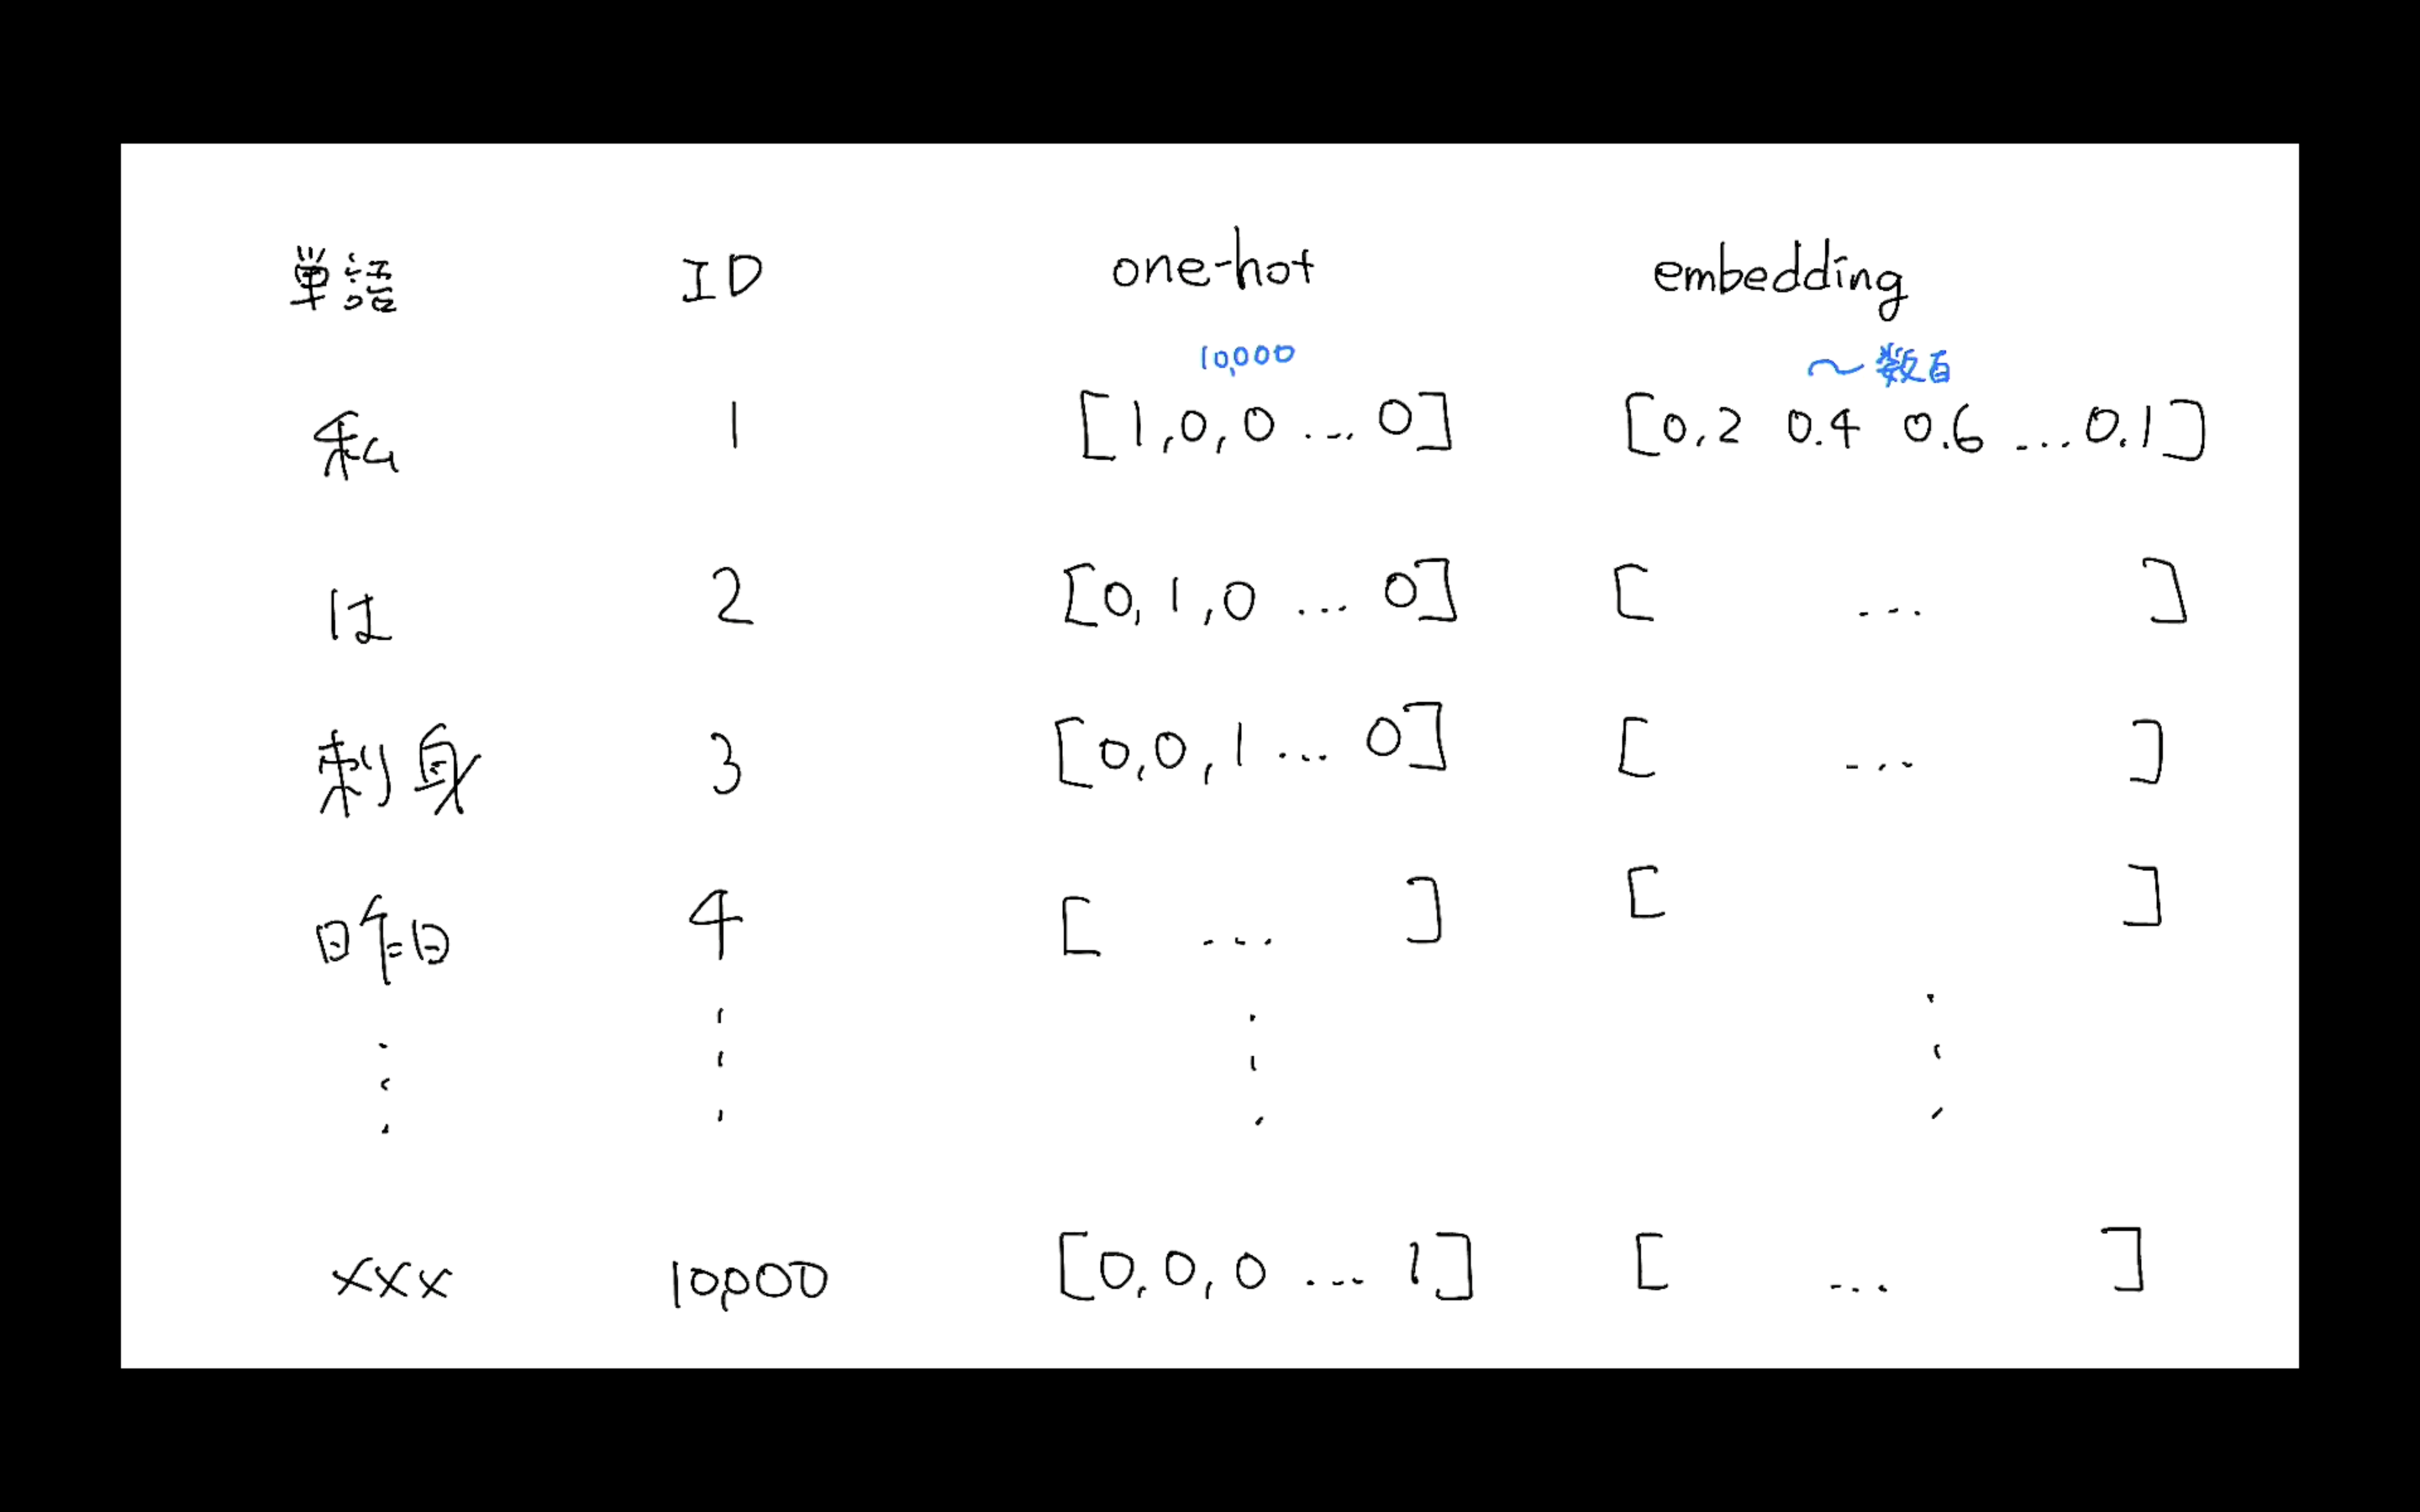 単語 ID one-hot embedding
10,000 〜数百
私 1 [1,0,0 ... 0] [0.2 0.4 0.6 ... 0.1]
は 2 [0,1,0 ... 0] [ ... ]
刺身 3 [0,0,1 ... 0] [ ... ]
昨日 4 [ ... ] [ ]
xxx 10,000 [0,0,0 ... 1] [ ... ]